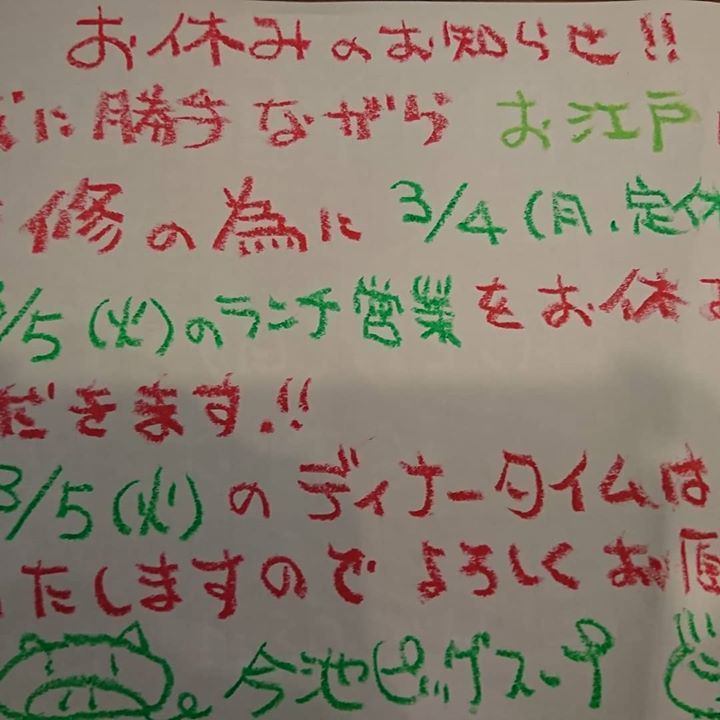 お休みのお知らせ!!
に勝手ながら お江戸
修の為に 3/4(月.定休
/5(火)のランチ営業をお休
だきます.!!
3/5(火)のディナータイムは
たしますので よろしくお願
今池ピッグスープ